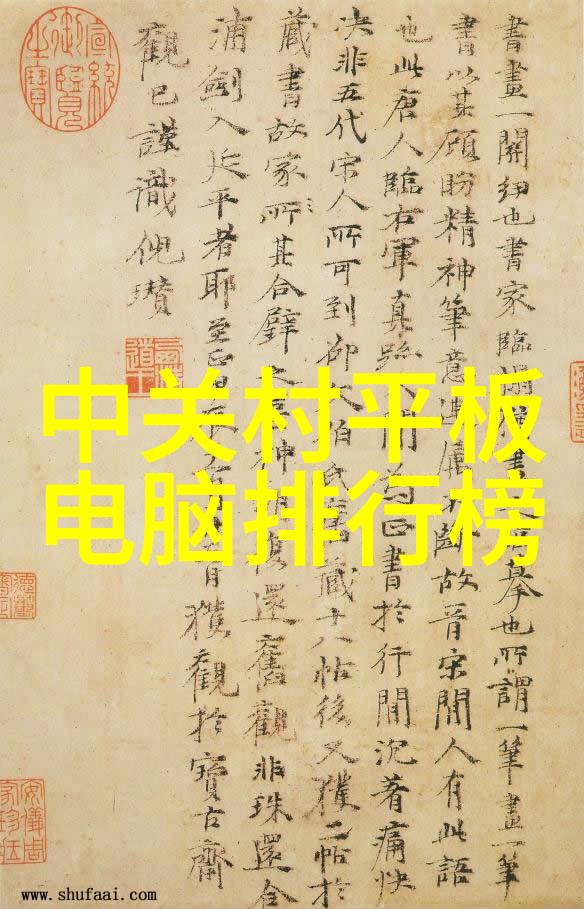 書畫一關紐也書家臨摹也所謂一筆畫一筆
書以其顧盼精神筆意故晋宋間人有此語
也此唐人臨右軍真跡書於行間沉著痛快
决非五代宋人所可到藏十八帖後又獲二帖於
蔵書故家所其合璧神復還舊觀非珠還合
浦劍入延平者耶至獲觀於寶古齋
觀巳謹識倪瓚
宣統御覽之寶
中关村平板
电脑排行榜
www.shufaai.com